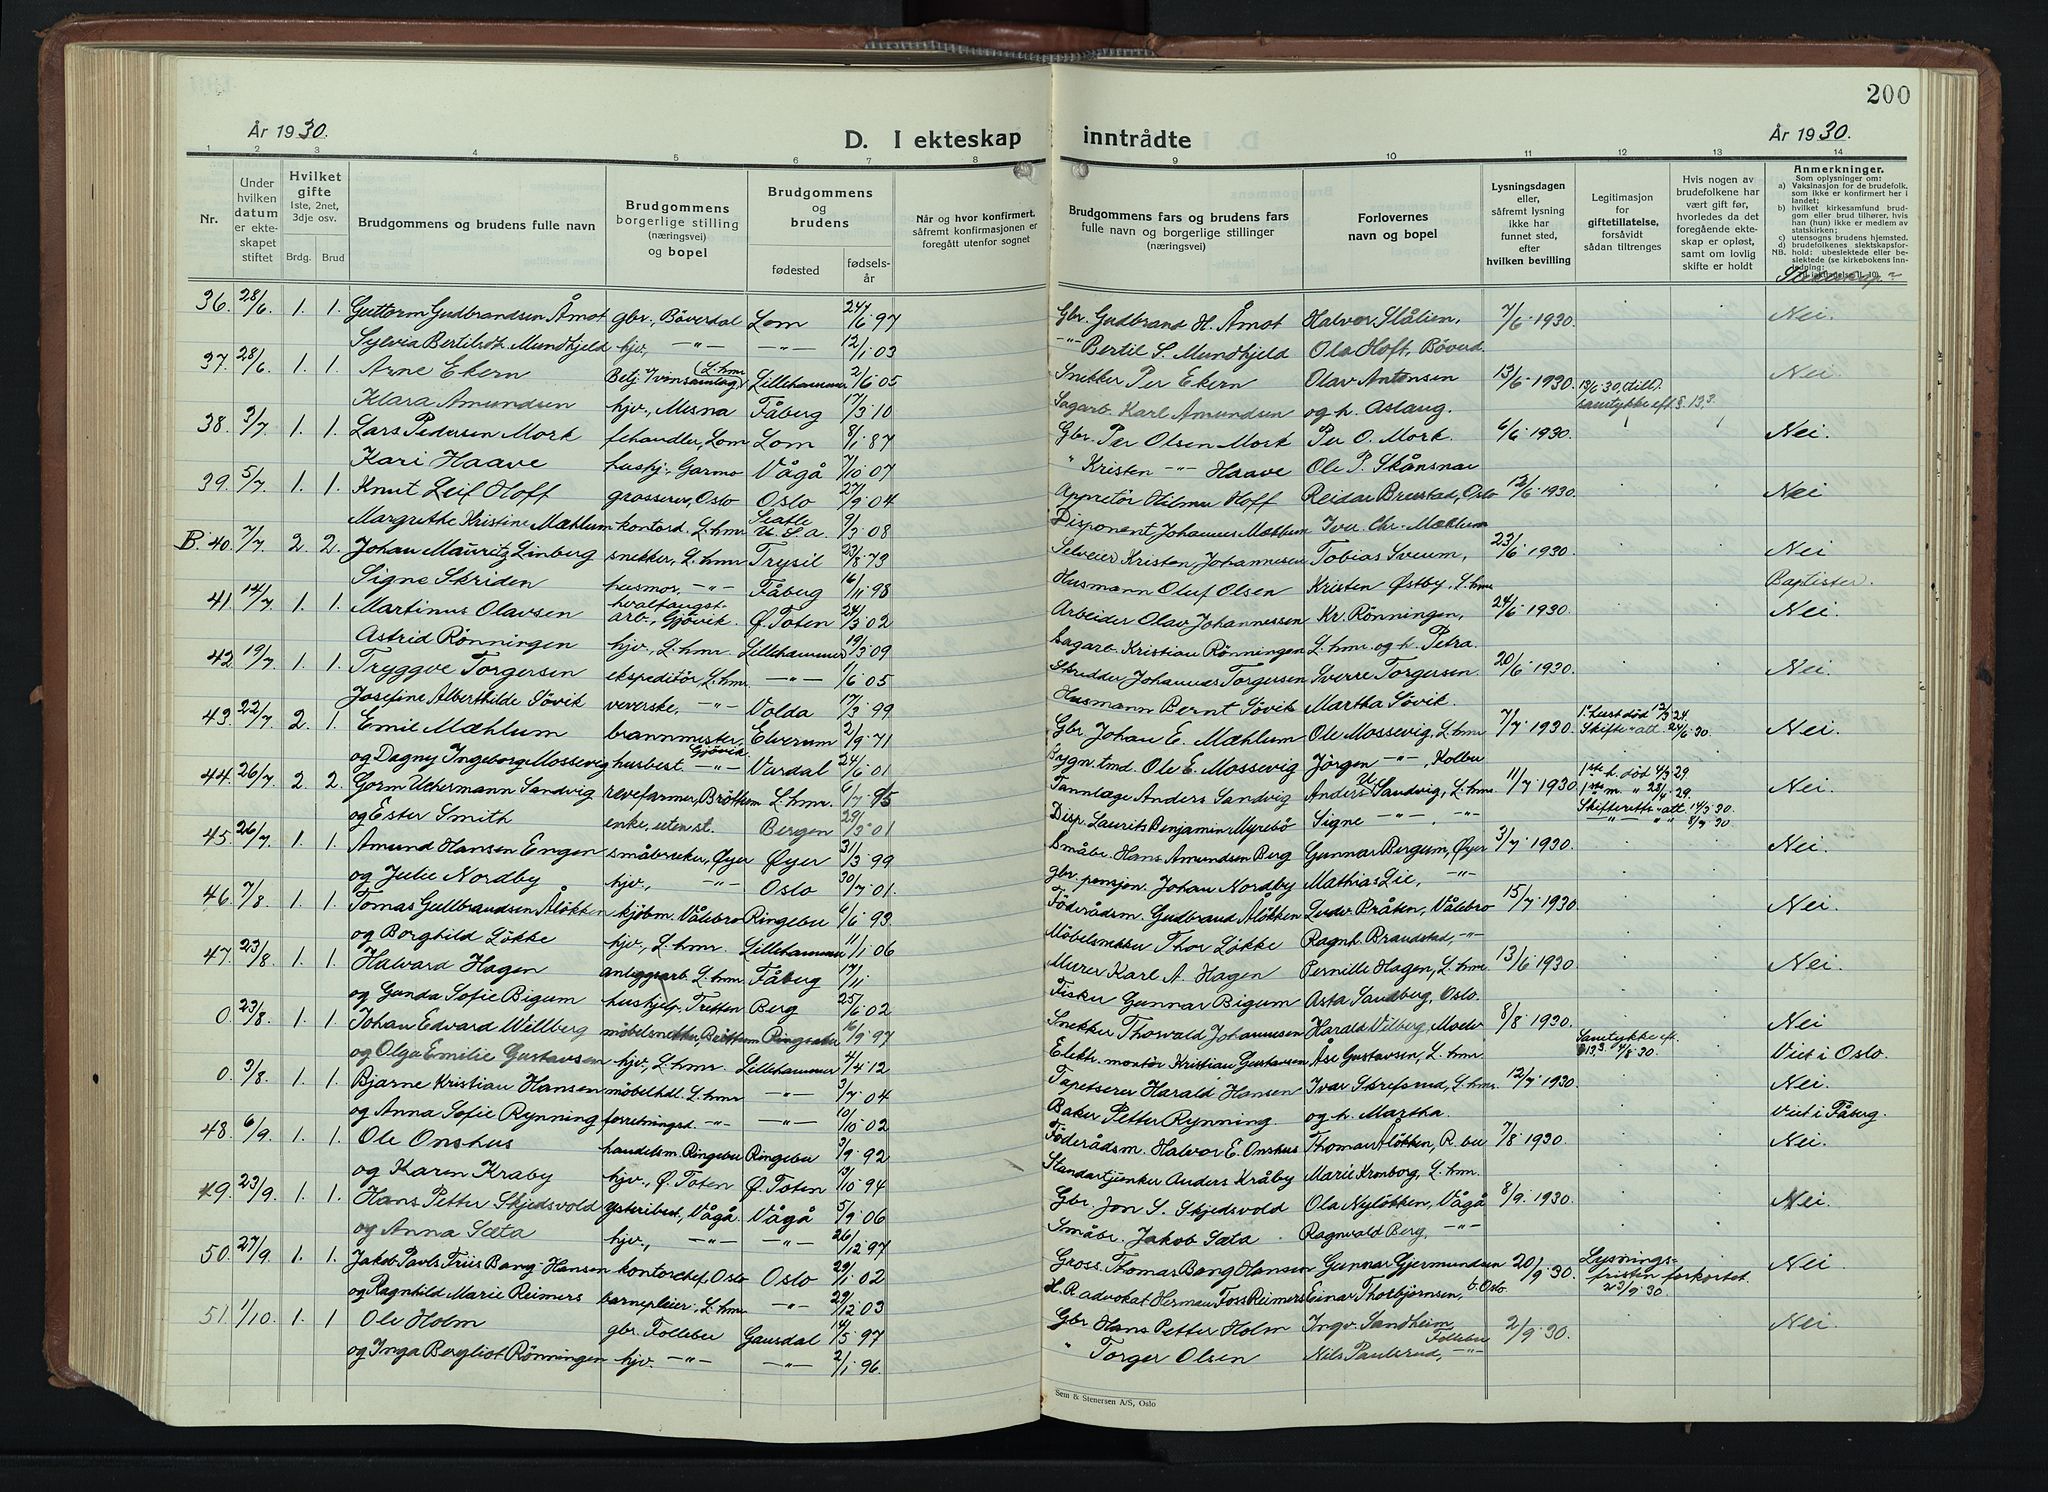 200
År 1930.
D. I ekteskap inntrådte
År 1930.
1 2 3 4 5 6 7 8 9 10 11 12 13 14
Nr.
Under hvilken datum er ekteskapet stiftet
Hvilket gifte 1ste, 2net, 3dje osv.
Brdg. Brud
Brudgommens og brudens fulle navn
Brudgommens borgerlige stilling (næringsvei) og bopel
Brudgommens og brudens
fødested
fødselsår
Når og hvor konfirmert, såfremt konfirmasjonen er foregått utenfor sognet
Brudgommens fars og brudens fars fulle navn og borgerlige stillinger (næringsvei)
Forlovernes navn og bopel
Lysningsdagen eller, såfremt lysning ikke har funnet sted, efter hvilken bevilling
Legitimasjon for giftetillatelse, forsåvidt sådan tiltrenges
Hvis nogen av brudefolkene har vært gift før, hvorledes da det foregående ekteskap er opløst, samt om lovlig skifte er holdt
Anmerkninger.
Som oplysninger om:
a) Vaksinasjon for de brudefolk, som ikke er konfirmert her i landet;
b) hvilket kirkesamfund brudgom eller brud tilhører, hvis han (hun) ikke er medlem av statskirken;
c) utensogns brudens hjemsted.
d) brudefolkenes slektskapsforhold: ubeslektede eller beslektede (se kirkebokens innledning:
36. 28/6 1. 1. Guttorm Gudbrandsen Åmot gbr., Böverdal Lom 24/6 97 Gbr. Gudbrand H. Åmot Halvor Stålien, 7/6 1930. Nei.
Sylvia Bertilsdt. Mundhjeld hjv., -"- -"- 12/1 03 -"- Bertil S. Mundhjeld Ola Hoft, Böverd.
37. 28/6 1. 1. Arne Ekern Betj. Vinsamlag (L.hmr Lillehammer 2/6 05 Snekker Per Ekern Olav Antonsen 13/6 1930. 13/6 30, (till). Nei
Klara Amundsen hjv., Mesna Fåberg 17/3 10 Sagarb. Karl Amundsen og h. Aslaug. samtykke eft. § 13,3.
38. 3/7 1. 1. Lars Pedersen Mork fehandler, Lom Lom 8/1 87 Gbr. Per Olsen Mork Per O. Mork. 6/6 1930. Nei.
Kari Haave hushj., Garmo Vågå 7/10 07 " Kristen -"- Haave Ole P. Skånsnar
39. 5/7 1. 1. Knut Leif Hoff grosserer, Oslo Oslo 27/9 04 Appretör Hilmar Hoff Reidar Brustad, Oslo 12/6 1930. Nei
Margrethe Kristine Mæhlum kontord. L.hmr Seatle U.S.a. 9/3 08 Disponent Johannes Mæhlum Iver Chr. Mæhlum
B. 40. 7/7 2. 2. Johan Mauritz Linberg snekker, L.hmr Trysil 23/8 73 Selveier Kristen Johannesen Tobias Sveum, 23/6 1930. Nei
Signe Skriden husmor, -"- Fåberg 16/11 98 Husmann Oluf Olsen Kristen Østby, L.hmr Baptister.
41. 14/7 1. 1. Martinus Olavsen hvalfangst-arb., Gjövik. Ø. Toten 24/3 02 Arbeider Olav Johannessen Kr. Rönningen, 24/6 1930. Nei.
Astrid Rönningen hjv., L.hmr. Lillehammer 19/3 09 Sagarb. Kristian Rönningen L.hmr og h. Petra.
42 19/7 1. 1. Tryggve Torgersen ekspeditör, L.hmr -"- 1/6 05 Skredder Johannes Torgersen Sverre Torgersen 20/6 1930. Nei.
Josefine Alberthilde Sövik veverske, -"- Volda 17/3 99 Husmann Bernt Sövik Martha Sövik.
43. 22/7 2. 1. Emil Mæhlum brannmester, Gjövik Elverum 2/9 71 Gbr Johan E. Mæhlum Ole Mossevig, L.hmr 7/7 1930 1. hust död 12/3 24. Skifte-att. 24/6 30. Nei.
og Dagny Ingeborg Mossevig husbest. -"- Vardal 24/6 01 Bygn.tmd. Ole E. Mossevig Jörgen -"-, Kolbu
44. 26/7 2. 2. Gorm Uchermann Sandvig revefarmer, Bröttum L.hmr. 6/7 95 Tannlæge Anders Sandvig Anders U. Sandvig, L.hmr 11/7 1930 1ste h. död 4/9 29. 1ste m. " 28/4 29. Nei.
og Ester Smith enke, uten st. Bergen 29/3 01 Disp. Laurits Benjamin Myrebö Signe -"-, -"- Skifteretts-att. 14/5 30. -"- " 8/7 30
45. 26/7 1. 1. Amund Hansen Engen småbruker, Øyer Øyer 31/3 99 Småbr. Hans Amundsen Berg Gunnar Bergum, Øyer 3/7 1930. Nei.
og Julie Nordby hjv., -"- Oslo 30/7 01. gbr. pensjon. Johan Nordby Mathias Lie, -"-
46. 7/8 1. 1. Tomas Gullbrandsen Åløkken kjöbm. Vålebro Ringebu 6/6 93 Föderådsm. Gudbrand Åløkken Ludv. Bråten, Vålebro 15/7 1930. Nei.
og Borghild Løkke hjv., L.hmr. Lillehammer 11/1 06 Möbelsnekker Thor Løkke Ragnh. Brandstad, -"-
47. 23/8 1. 1. Halvard Hagen anleggsarb. L.hmr Fåberg 17/11 Murer Karl A. Hagen Pernille Hagen, L.hmr 13/6 1930 Nei.
og Gunda Sofie Bigum hushjelp, Tretten Berg 25/6 02 Fisker Gunnar Bigum Asta Sandberg, Oslo.
0. 23/8. 1. 1 Johan Edvard Willberg möbelsnekker, Bröttum Ringsaker 16/9 97 Snekker Thorvald Johannesen Harald Vilberg, Moelv 8/8 1930. Nei
og Olga Emilie Gustavsen hjv., L.hmr. Lillehammer 4/4 12 Elektr. montör Kristian Gustavsen Åse Gustavsen, L.hmr Samtykke eft. §13.3. 4/8 30. Viet i Oslo.
0 3/8. 1. 1 Bjarne Kristian Hansen möbelhdl. L.hmr -"- 3/7 04 Tapetserer Harald Hansen Ivar Skrefsrud, L.hmr. 12/7 1930 Nei.
og Anna Sofie Rynning forretningsd. -"- -"- 10/10 02 Baker Petter Rynning. og h. Martha. Viet i Fåberg.
48. 6/9. 1. 1. Ole Onshus handelsm. Ringebu Ringebu 3/9 92 Föderådsm. Halvor E. Onshus Thomas Åløkken, R.bu 7/8 1930. Nei.
og Karen Kraby hjv., Ø. Toten Ø. Toten 13/10 94 Standartjunker Anders Kråby Marie Kronborg, L.hmr.
49. 23/9. 1. 1. Hans Petter Skjedsvold ysteribest., Vågå Vågå 5/9 06 Gbr. Jon S. Skjedsvold Ola Nyløkken, Vågå 8/9. 1930. Nei.
og Anna Sæta hjv., -"- -"- 26/12 97 Småbr. Jakob Sæta. Ragnvald Berg, -"-
50. 27/9. 1. 1. Jakob Pavls Friis Bang-Hansen kontorchef, Oslo Oslo 29/1 02 Gross. Thomas Bang Hansen Gunnar Gjermundsen 20/9 30. Lysnings-fristen forkortet. 23/9 30. Nei
og Ragnhild Marie Reimers barnepleier, L.hmr -"- 29/12 03 H.R.advokat Herman Foss Reimers Einar Thorbjørnsen, b. Oslo.
51. 1/10. 1. 1 Ole Holm gbr. Follebu Gausdal 14/5 97 Gbr Hans Petter Holm Ingv. Sandheim, Follebu 2/9 30. Nei.
og Inga Bergliot Rönningen hjv. -"- -"- 2/1 96. " Torger Olsen Nils Paulsrud, -"-
Sem & Stenersen A/S, Oslo